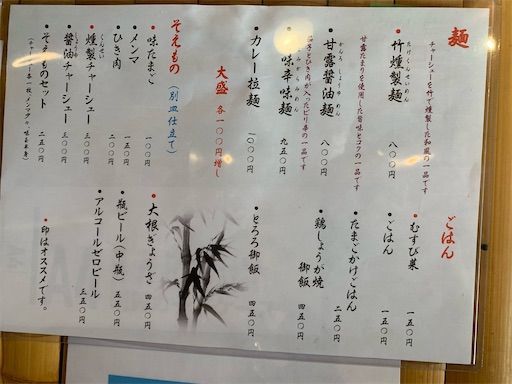 麺
チャーシューを竹で燻製した和風の一品です
・竹燻製麺 八〇〇円
たけくんせいめん
甘露たまりを使用した旨味とコクの一品です
・甘露醤油麺 八〇〇円
かんろしょうゆめん
茄子とひき肉が入ったピリ辛の一品です
味辛味麺 九五〇円
・カレー拉麺 一〇〇〇円
大盛 各一〇〇円増し
そえもの(別皿仕立て)
・味たまご 一〇〇円
メンマ 一五〇円
ひき肉 二〇〇円
・燻製チャーシュー 三〇〇円
くんせい
・醤油チャーシュー 三〇〇円
しょうゆ
・そえものセット 二五〇円
ごはん
・むすび菜 一五〇円
ごはん 一五〇円
・たまごかけごはん 二五〇円
・鶏しょうが焼御飯 四五〇円
・とろろ御飯 四五〇円
・大根ぎょうざ 四五〇円
・瓶ビール(中瓶) 五五〇円
・アルコールゼロビール 三五〇円
・印はオススメです。